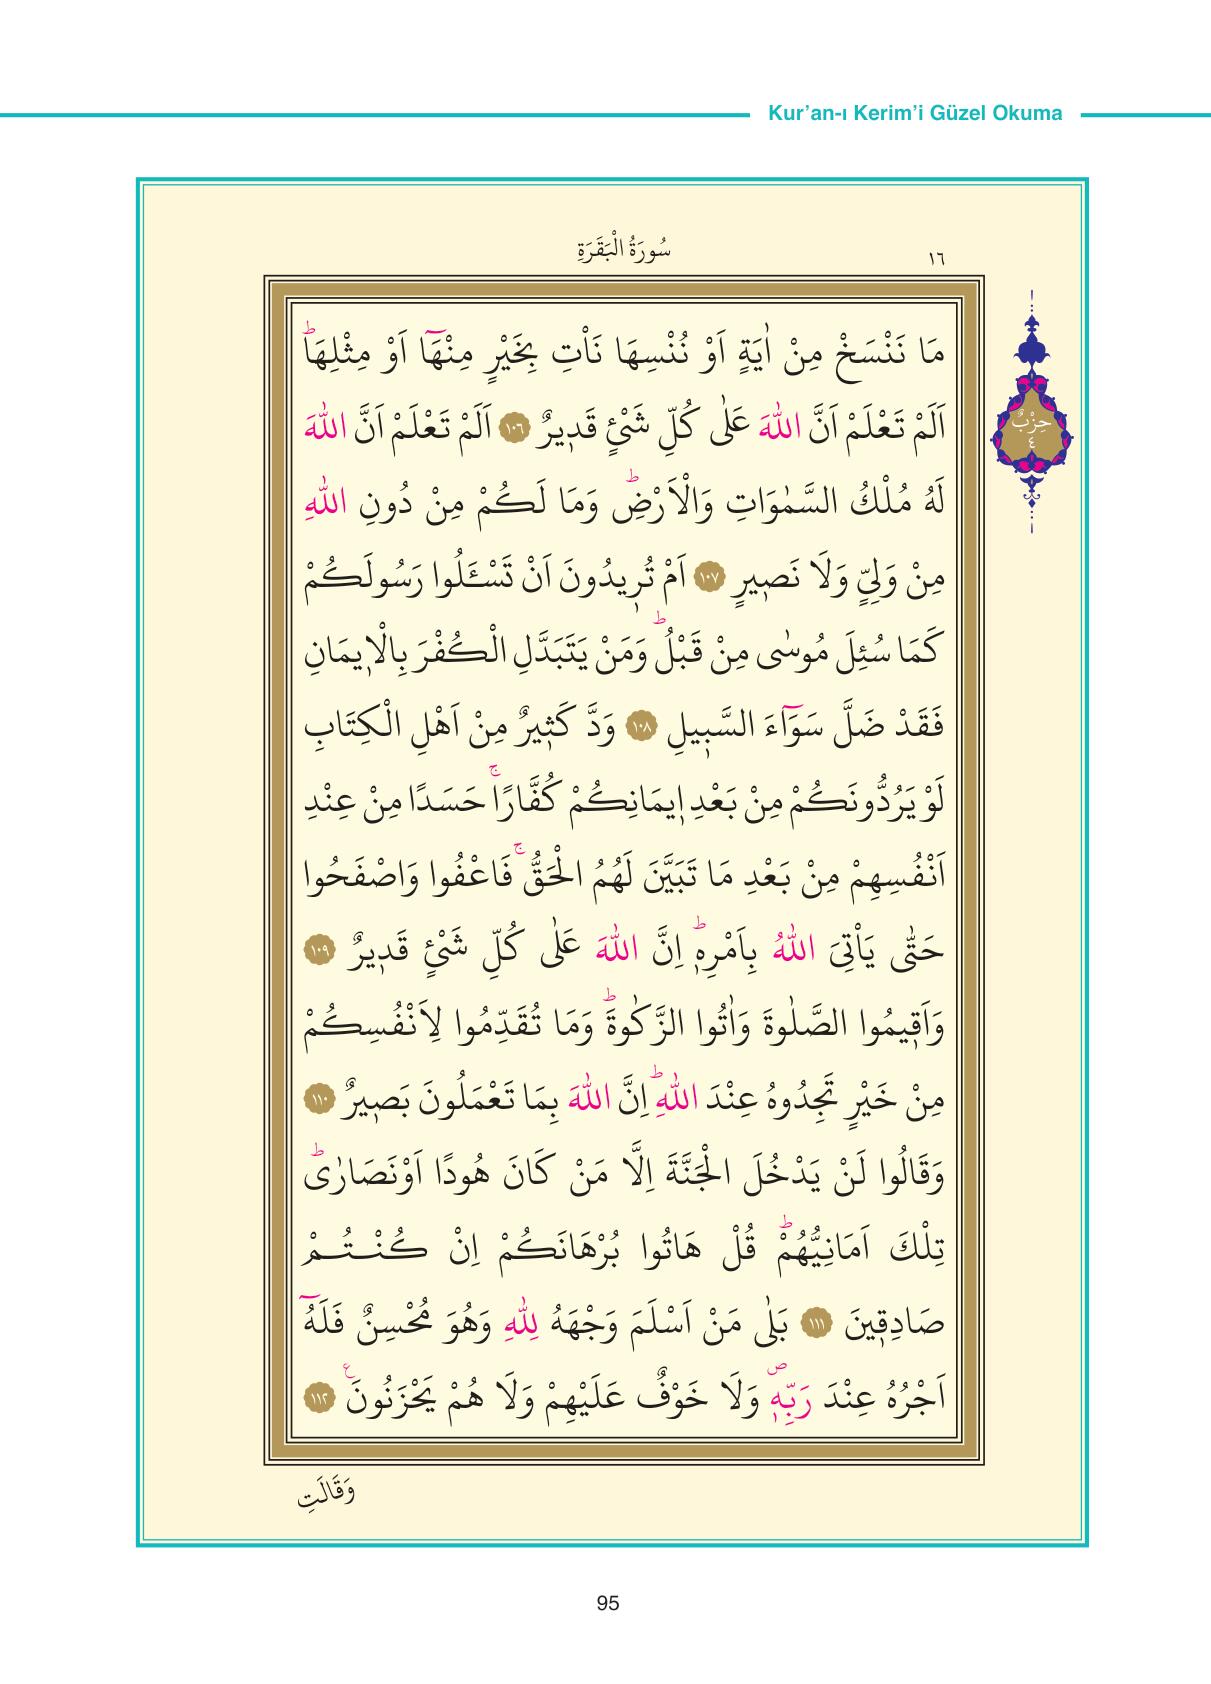 Kur’an-ı Kerim’i Güzel Okuma
سُورَةُ الْبَقَرَةِ
١٦
حِزْبٌ
٤
مَا نَنْسَخْ مِنْ اٰيَةٍ اَوْ نُنْسِهَا نَأْتِ بِخَيْرٍ مِنْهَٓا اَوْ مِثْلِهَاۜ
اَلَمْ تَعْلَمْ اَنَّ اللّٰهَ عَلٰى كُلِّ شَيْءٍ قَد۪يرٌ ﴿١٠٦﴾ اَلَمْ تَعْلَمْ اَنَّ اللّٰهَ
لَهُ مُلْكُ السَّمٰوَاتِ وَالْاَرْضِۜ وَمَا لَكُمْ مِنْ دُونِ اللّٰهِ
مِنْ وَلِيٍّ وَلَا نَص۪يرٍ ﴿١٠٧﴾ اَمْ تُر۪يدُونَ اَنْ تَسْـَٔلُوا رَسُولَكُمْ
كَمَا سُئِلَ مُوسٰى مِنْ قَبْلُۜ وَمَنْ يَتَبَدَّلِ الْكُفْرَ بِالْا۪يمَانِ
فَقَدْ ضَلَّ سَوَٓاءَ السَّب۪يلِ ﴿١٠٨﴾ وَدَّ كَث۪يرٌ مِنْ اَهْلِ الْكِتَابِ
لَوْ يَرُدُّونَكُمْ مِنْ بَعْدِ ا۪يمَانِكُمْ كُفَّارًاۚ حَسَدًا مِنْ عِنْدِ
اَنْفُسِهِمْ مِنْ بَعْدِ مَا تَبَيَّنَ لَهُمُ الْحَقُّۚ فَاعْفُوا وَاصْفَحُوا
حَتّٰى يَأْتِيَ اللّٰهُ بِاَمْرِه۪ۜ اِنَّ اللّٰهَ عَلٰى كُلِّ شَيْءٍ قَد۪يرٌ ﴿١٠٩﴾
وَاَق۪يمُوا الصَّلٰوةَ وَاٰتُوا الزَّكٰوةَۜ وَمَا تُقَدِّمُوا لِاَنْفُسِكُمْ
مِنْ خَيْرٍ تَجِدُوهُ عِنْدَ اللّٰهِۜ اِنَّ اللّٰهَ بِمَا تَعْمَلُونَ بَص۪يرٌ ﴿١١٠﴾
وَقَالُوا لَنْ يَدْخُلَ الْجَنَّةَ اِلَّا مَنْ كَانَ هُودًا اَوْ نَصَارٰىۜ
تِلْكَ اَمَانِيُّهُمْۜ قُلْ هَاتُوا بُرْهَانَكُمْ اِنْ كُنْتُمْ
صَادِق۪ينَ ﴿١١١﴾ بَلٰى مَنْ اَسْلَمَ وَجْهَهُ لِلّٰهِ وَهُوَ مُحْسِنٌ فَلَهُٓ
اَجْرُهُ عِنْدَ رَبِّه۪ۖ وَلَا خَوْفٌ عَلَيْهِمْ وَلَا هُمْ يَحْزَنُونَ۟ ﴿١١٢﴾
وَقَالَتِ
95